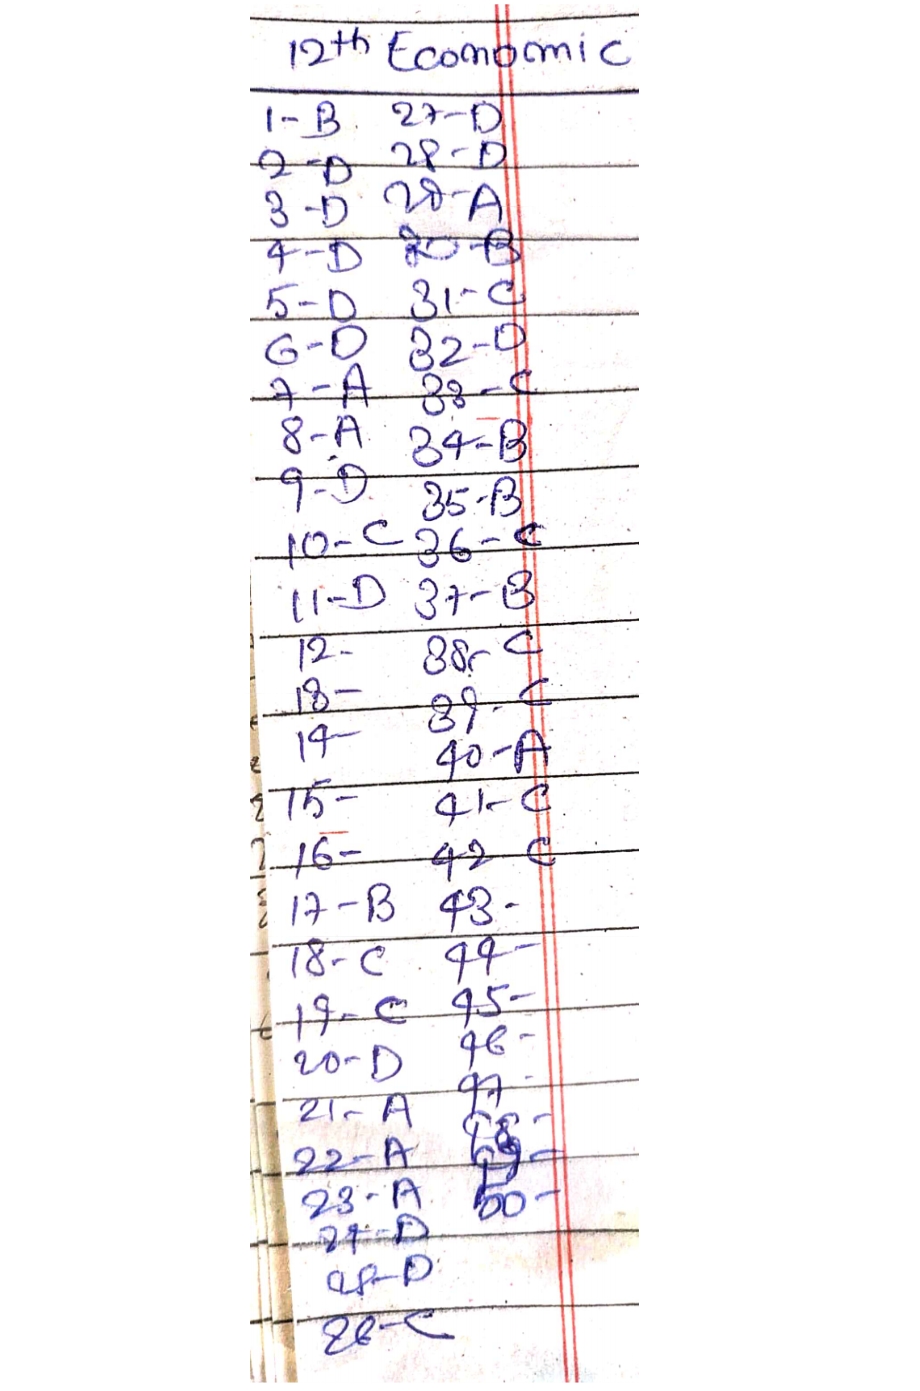 12th Economic
1-B
2-D
3-D
4-D
5-D
6-D
7-A
8-A
9-D
10-C
11-D
12-
13-
14-
15-
16-
17-B
18-C
19-C
20-D
21-A
22-A
23-A
24-D
25-D
26-C
27-D
28-D
29-A
30-B
31-C
32-D
33-C
34-B
35-B
36-C
37-B
38-C
39-C
40-A
41-C
42-C
43-
44-
45-
46-
47-
48-
49-
50-